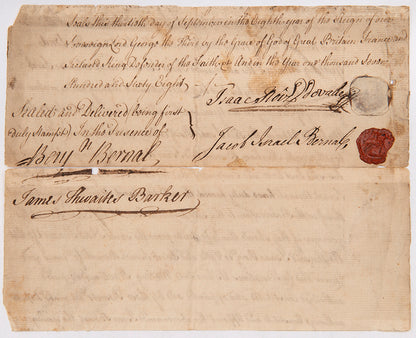 Seals this thirtieth day of September in the Eighth year of the Reign of our
Sovereign Lord George the Third by the Grace of God of Great Britain France and
Ireland King Defender of the Faith et And in the Year one thousand Seven
Hundred and Sixty Eight
Sealed and Delivered being first
duly Stampt In the Presence of
Isaac
Jacob Israel Bernal
Benjn Bernal
James Thwaites Barker